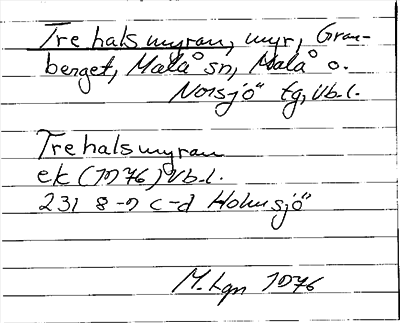 Trehalsmyran, myr, Gran-
berget, Malå sn, Malå o.
Norsjö tg, Vb.l.
Trehalsmyran
ek (1976) Vb.l.
231 8-9 c-d Holmsjö
1976